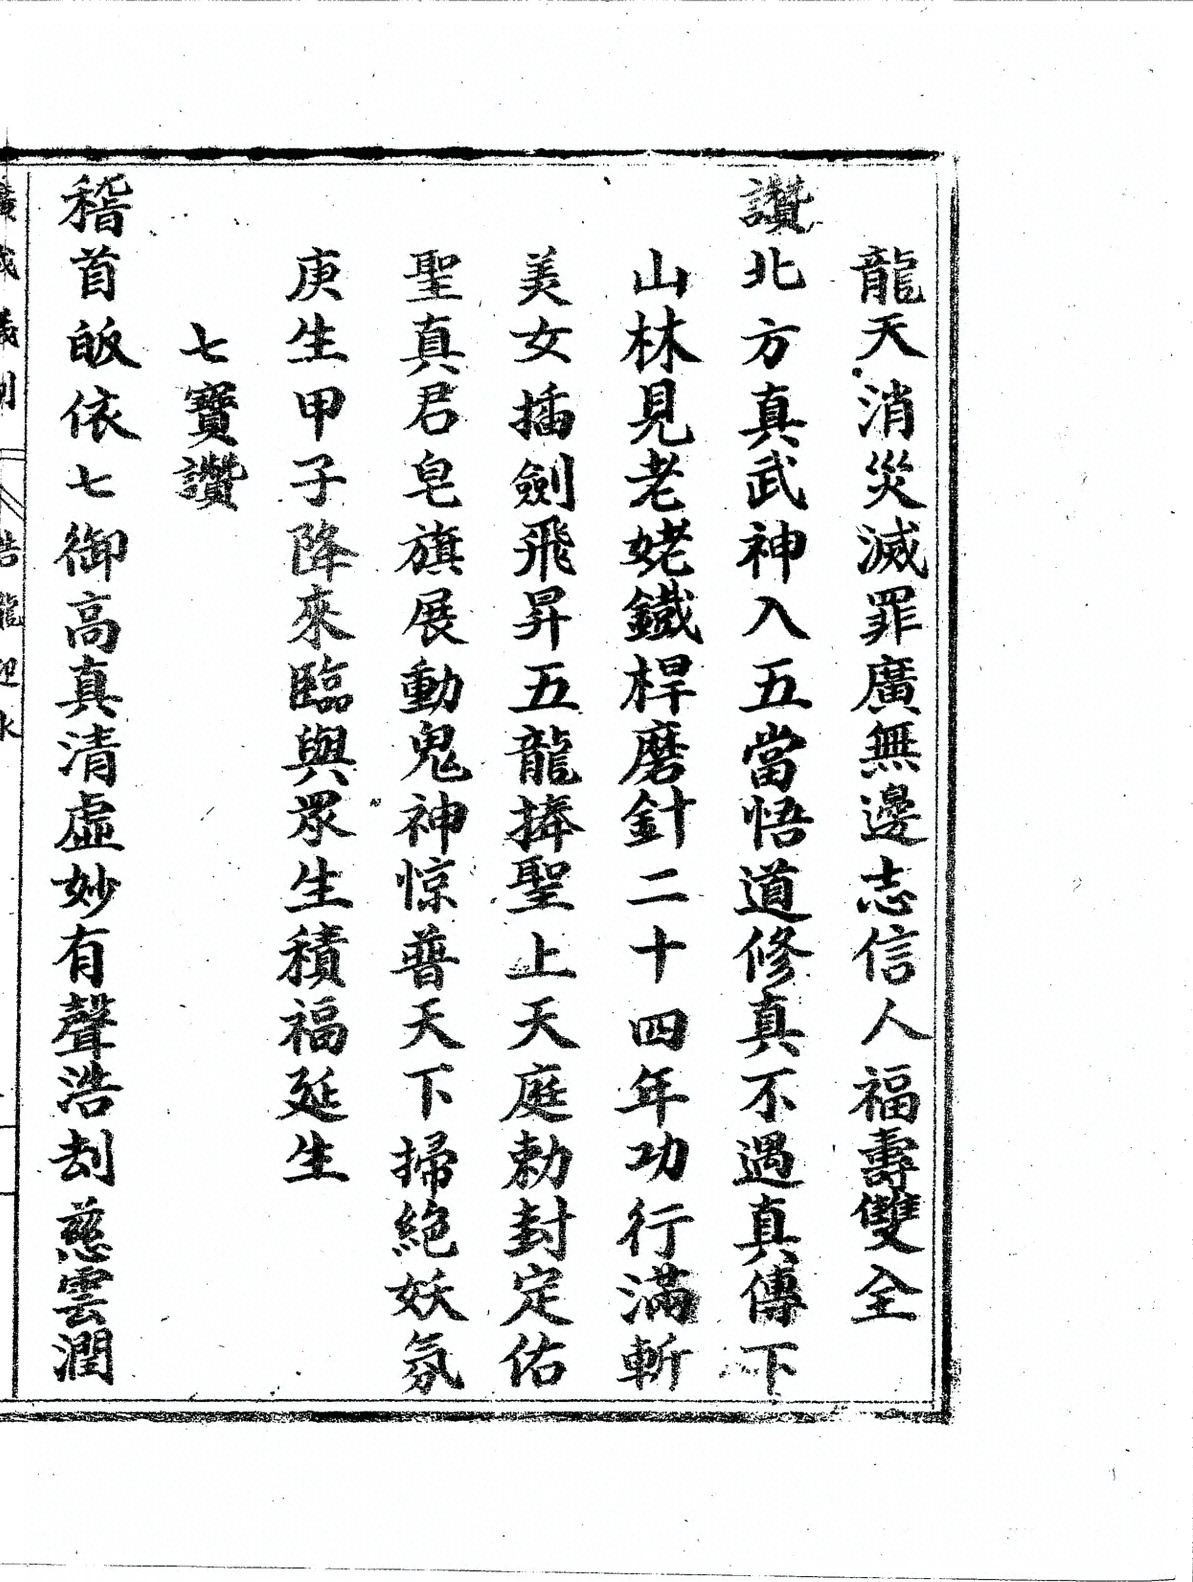 龍天消災滅罪廣無邊志信人福壽雙全
讚北方真武神入五當悟道修真不遇真傳下
山林見老姥鐵桿磨針二十四年功行滿斬
美女插劍飛昇五龍捧聖上天庭勅封定佑
聖真君皂旗展動鬼神惊普天下掃絕妖氛
庚生甲子降來臨與眾生積福延生
七寶讚
稽首皈依七御高真清虛妙有聲浩刦慈雲潤
廣成儀制
誥龍迎水